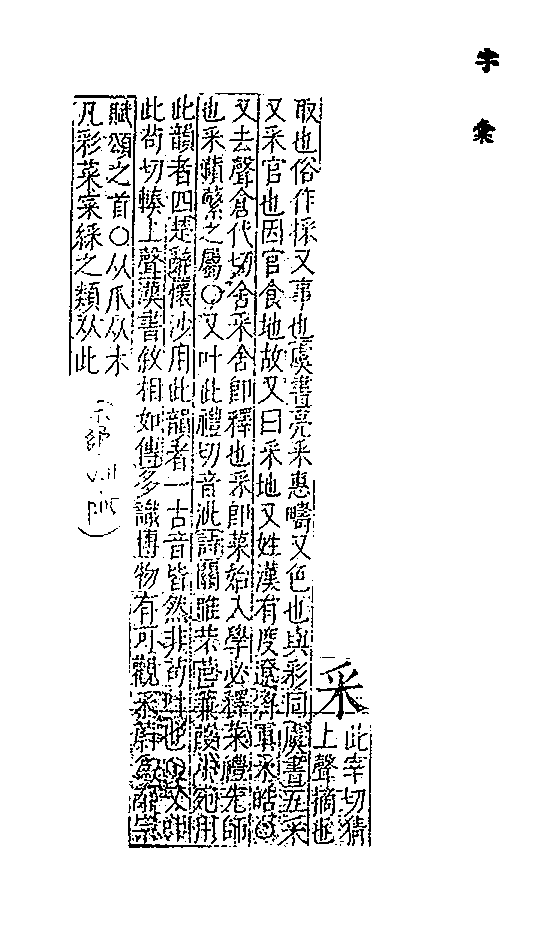 字彙
采
此宰切猜
上聲摘也
取也俗作採又事也虞書亮采惠疇又色也與彩同虞書五采
又采官也因官食地故又曰采地又姓漢有度遼將軍采皓○
又去聲倉代切舍采舍即釋也采即菜始入學必釋菜禮先師
也采蘋蘩之屬○又叶此禮切音泚詩關雎芣苢蒹葭小宛用
此韻者四楚辭懷沙用此韻者一古音皆然非苟叶也○又叶
此苟切輳上聲漢書敘相如傳多識博物有可觀采蔚為辭宗
賦頌之首○从爪从木
凡彩菜寀綵之類从此